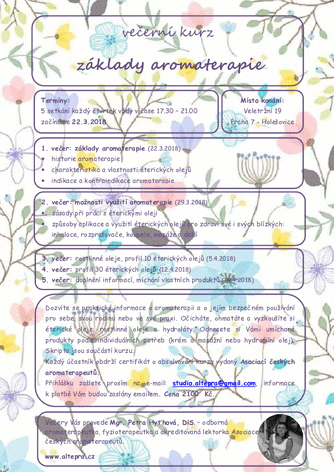 večerní kurz
základy aromaterapie
Termíny:
5 setkání každý čtvrtek vždy v čase 17:30 – 21:00
začínáme 22.3.2018
Místo konání:
Veletržní 19
Praha 7 - Holešovice
1. večer: základy aromaterapie (22.3.2018)
• historie aromaterapie
• charakteristika a vlastnosti éterických olejů
• indikace a kontraindikace aromaterapie
2. večer: možnosti využití aromaterapie (29.3.2018)
• zásady při práci s éterickými oleji
• způsoby aplikace a využití éterických olejů pro zdraví své i svých blízkých:
inhalace, rozprašovače, koupele, masáže a další
3. večer: rostlinné oleje, profil 10 éterických olejů (5.4.2018)
4. večer: profil 30 éterických olejů (12.4.2018)
5. večer: doplnění informací, míchání vlastních produktů
Dozvíte se praktické informace o aromaterapii a o jejím bezpečném používání
pro sebe, svou rodinu nebo ve své praxi. Očicháte, ohmatáte a vyzkoušíte si
éterické oleje, rostlinné oleje a hydroláty. Odnesete si Vámi umíchané
produkty podle individuálních potřeb (krém a masážní nebo hydrofilní olej).
Skripta jsou součástí kurzu.
Každý účastník obdrží certifikát o absolvování kurzu vydaný Asociací českých
aromaterapeutů.
Přihlášku zašlete prosím na e-mail: studio.altepra@gmail.com, informace
k platbě Vám budou zaslány emailem. Cena 2100 Kč.
Večery Vás provede Mgr. Petra Hyťhová, DiS. - odborná
aromaterapeutka, fyzioterapeutka a akreditovaná lektorka Asociace
českých aromaterapeutů.
www.altepra.cz